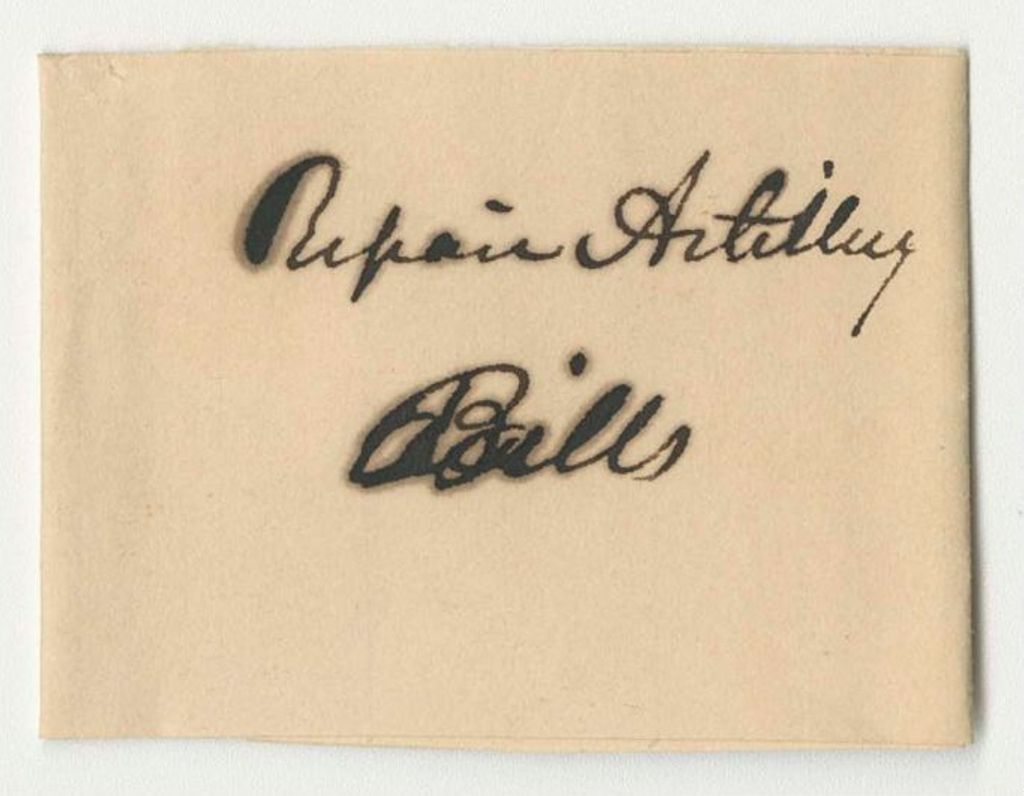 Repair Artillery
Bills